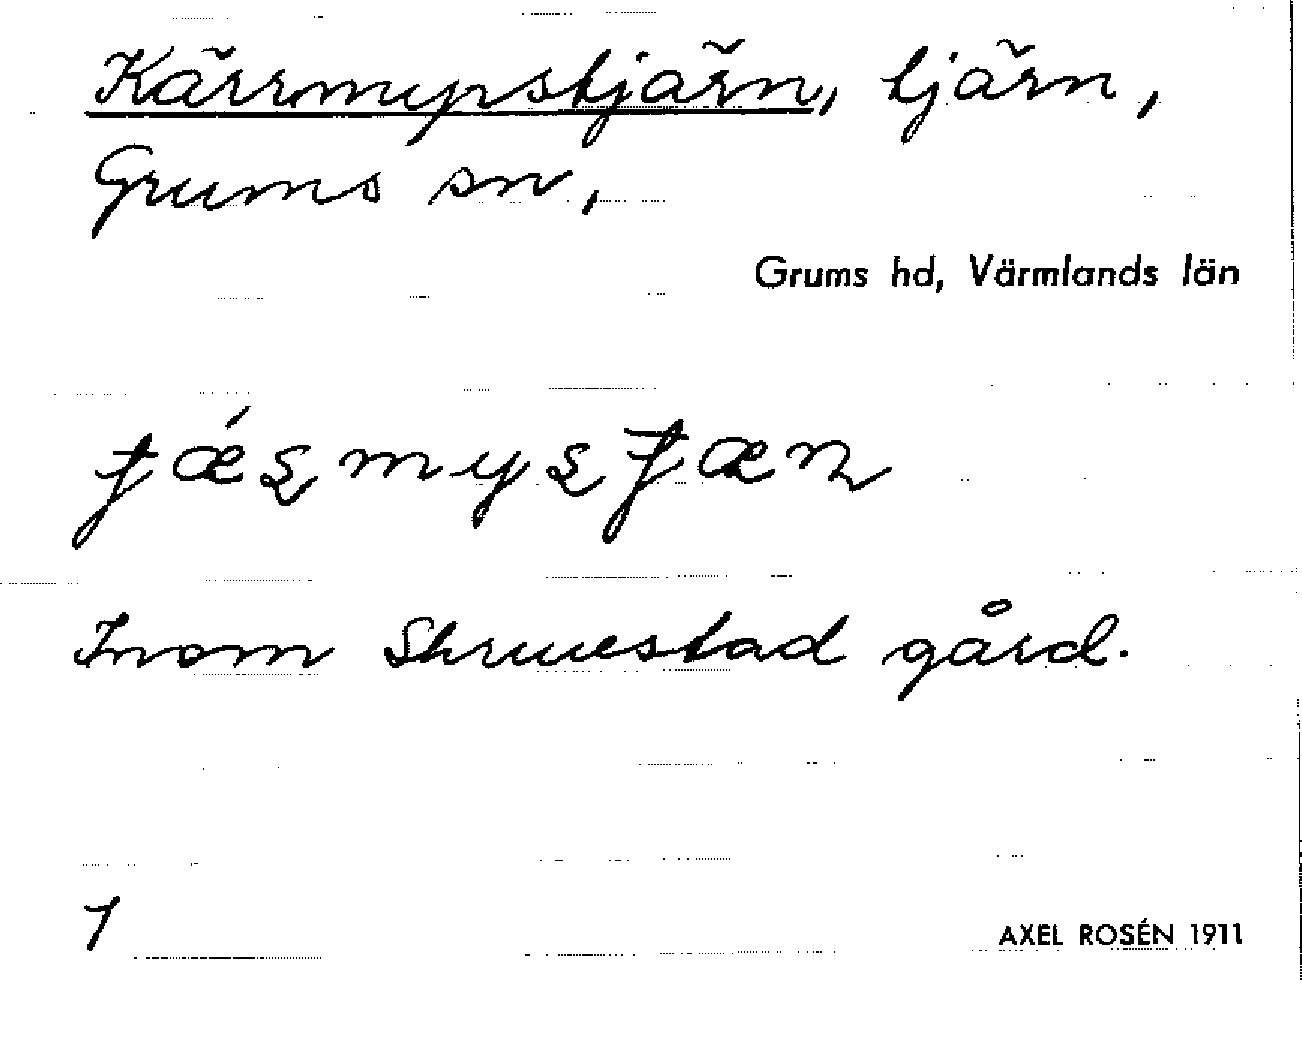 Kärrmyrstjärn, tjärn,
Grums sn,
Grums hd, Värmlands län
Inom Skruvstad gård.
7
AXEL ROSÉN 1911